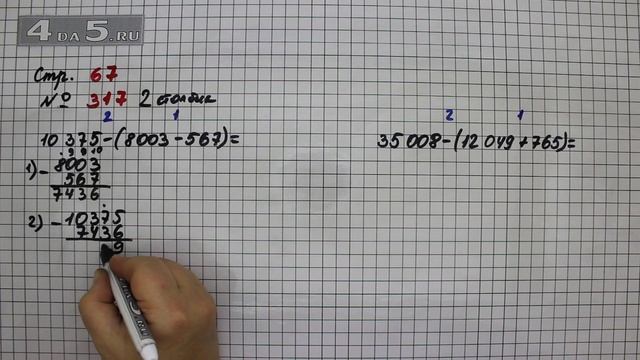 4 DA 5.RU
Стр. 67
№ 317 2 столбик
2 1
10 375-(8003-567)=
1) - 8003
567
7436
2) - 10375
7436
9
2 1
35 008-(12 049+765)=